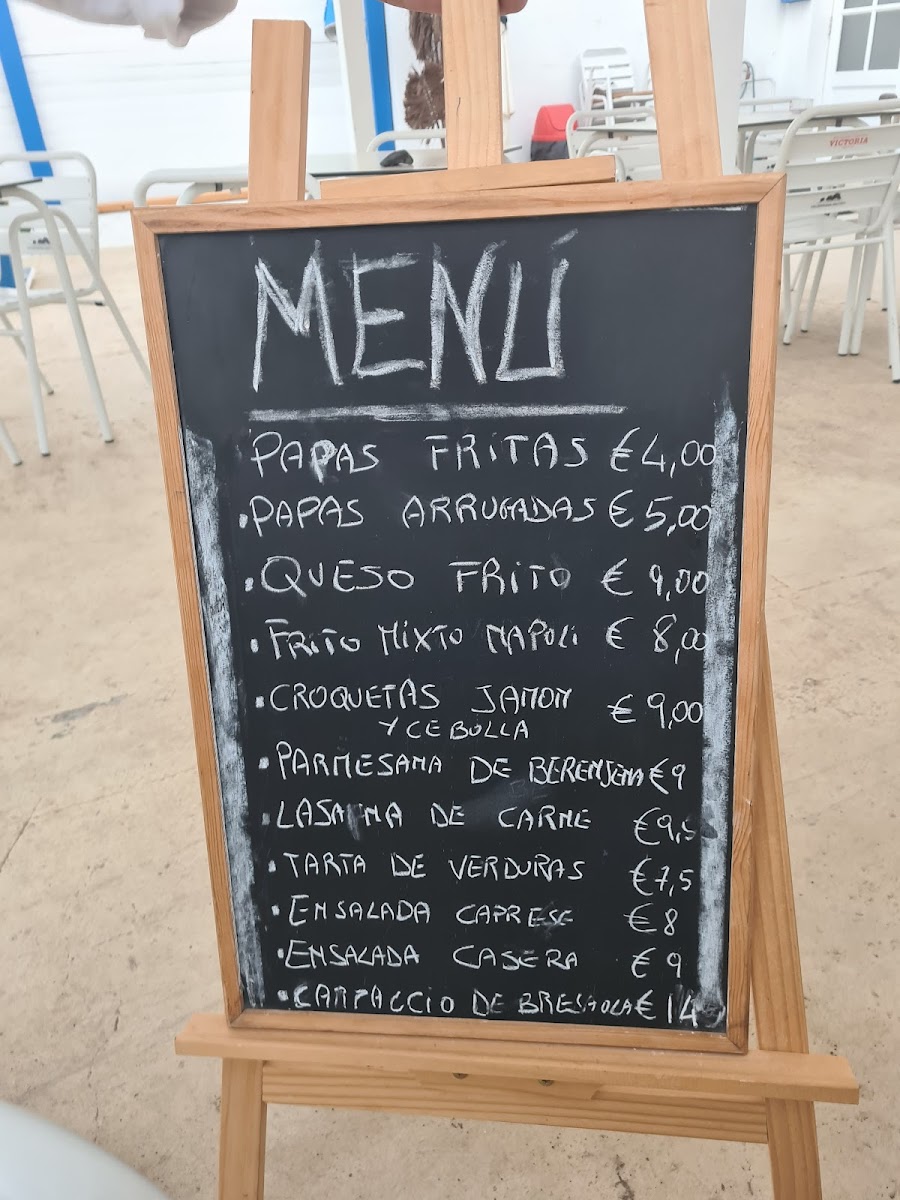 MENÚ
PAPAS FRITAS €4,00
.PAPAS ARRUGADAS € 5,00
.QUESO FRITO € 9,00
.FRITO MIXTO NAPOLI € 8,00
.CROQUETAS JAMON € 9,00
Y CEBOLLA
.PARMESANA DE BERENJENA €9
.LASAÑA DE CARNE €9,5
.TARTA DE VERDURAS €7,5
.ENSALADA CAPRESE €8
.ENSALADA CASERA €9
.CARPACCIO DE BRESAOLA €14
VICTORIA